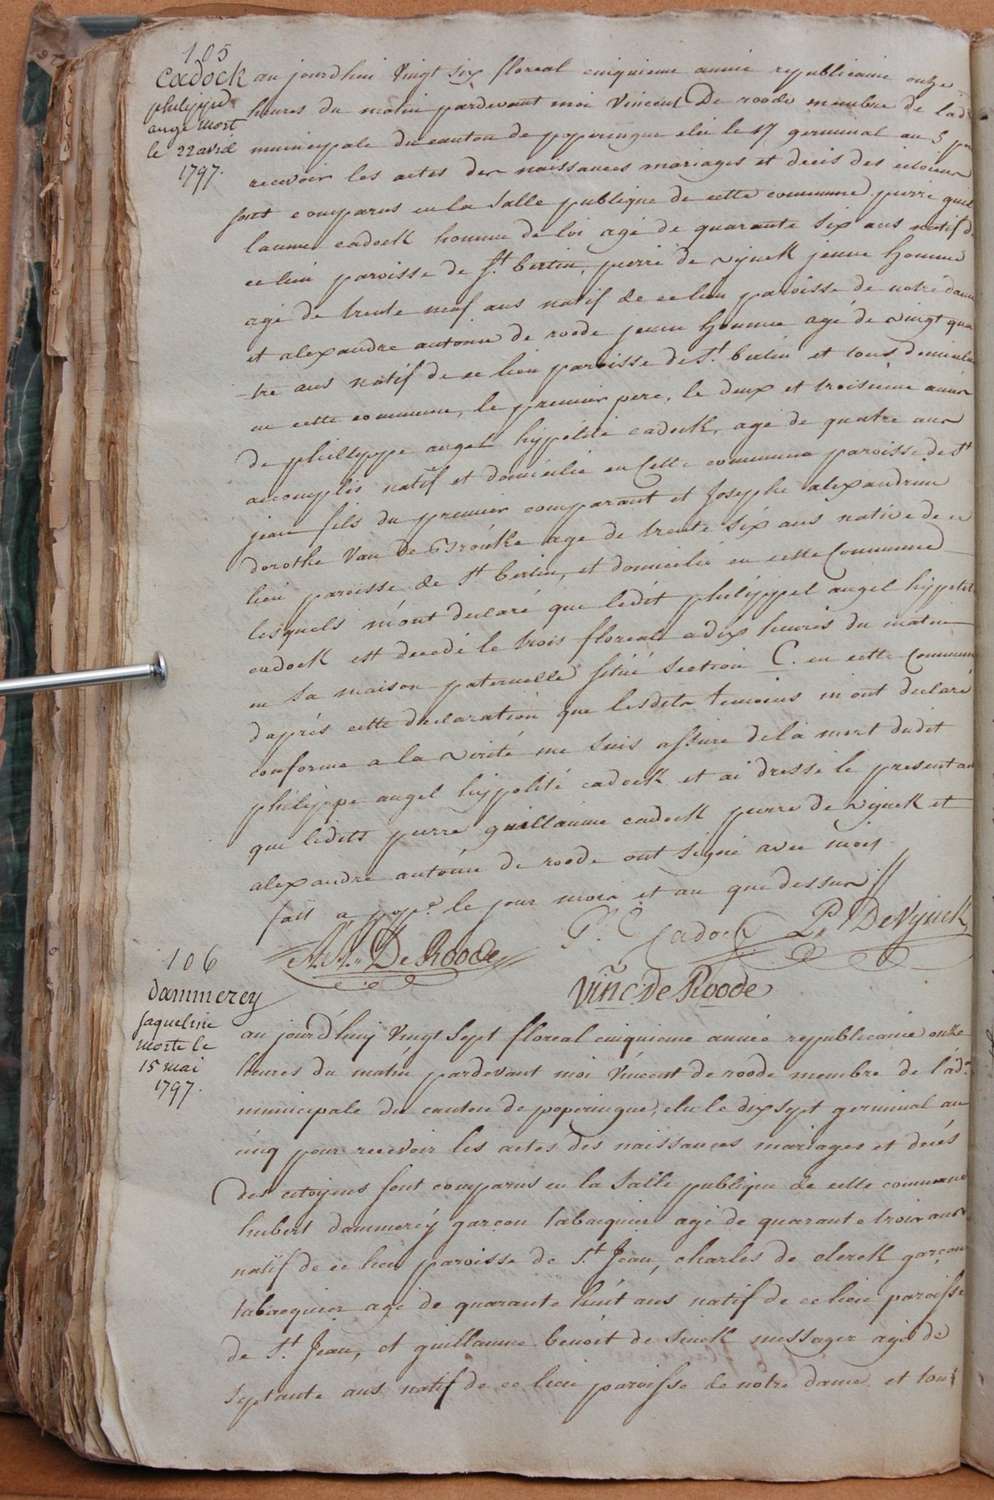 105
Cadock
philippe
ange mort
le 22 avril
1797.
au jourdhui vingt six floreal cinquieme année republicaine onze
heures du matin pardevant moi Vincent De roode membre de l'ad
municipale du canton de poperingue elu le 17 germinal an 5 pr
recevoir les actes der naissances mariages et decés des citoiens
sont comparus en la salle publique de cette commune, pierre guil
laume cadock homme de loi agé de quarante six ans natif de
ce lieu paroisse de St bertin, pierre de vynck jeune homme
agé de trente neuf ans natif de ce lieu paroisse de notre dame
et alexandre antoine de roode jeune homme agé de vingt qua
tre ans natif de ce lieu paroisse de St bertin et tous domicilié
en cette commune, le premier pere, le deux et troisieme amis
de philippe angel hypolite cadock, agé de quatre ans
accomplis natif et domicilié en cette commune paroisse de St
jean fils du premier comparant et Josephe alexandrine
dorothe Van de Broucke agé de trente six ans native de ce
lieu paroisse de St bertin, et domicilié en cette Commune
lesquels m'ont declaré que ledit philippel angel hypolite
cadock est decedé le trois floreal a dix heures du matin
en sa maison paternelle situé section C. en cette Commune
d'aprés cette declaration que lesdits temoins m'ont declaré
conforme a la verité me suis assuré de la mort dudit
philippe angel hypolité cadock et ai dressé le present acte
que lédits pierre guillaume cadock pierre de vynck et
alexandre antoine de roode ont signé avec moi.
fait a pope. le jour mois et an que dessus //
A. A. De Roode P. G. Cadock P. DeVynck
Vinc De Roode
106
dammerey
jaqueline
morte le
15 mai
1797.
au jourd'huy vingt sept floreal cinquieme année republicaine onze
heures du matin pardevant moi Vincent de roode membre de l'adn
municipale du canton de poperingue, elu le dix sept germinal an
cinq pour recevoir les actes des naissances mariages et decés
des citoyens sont comparus en la Salle publique de cette commune
hubert dammerey garçon tabacquier agé de quarante trois ans
natif de ce lieu paroisse de St Jean, charles de clerck garçon
tabacquier agé de quarante huit ans natif de ce lieu paroisse
de St Jean, et guillaume benoit de sinck messager agé de
septante ans natif de ce lieu paroisse de notre dame et tous